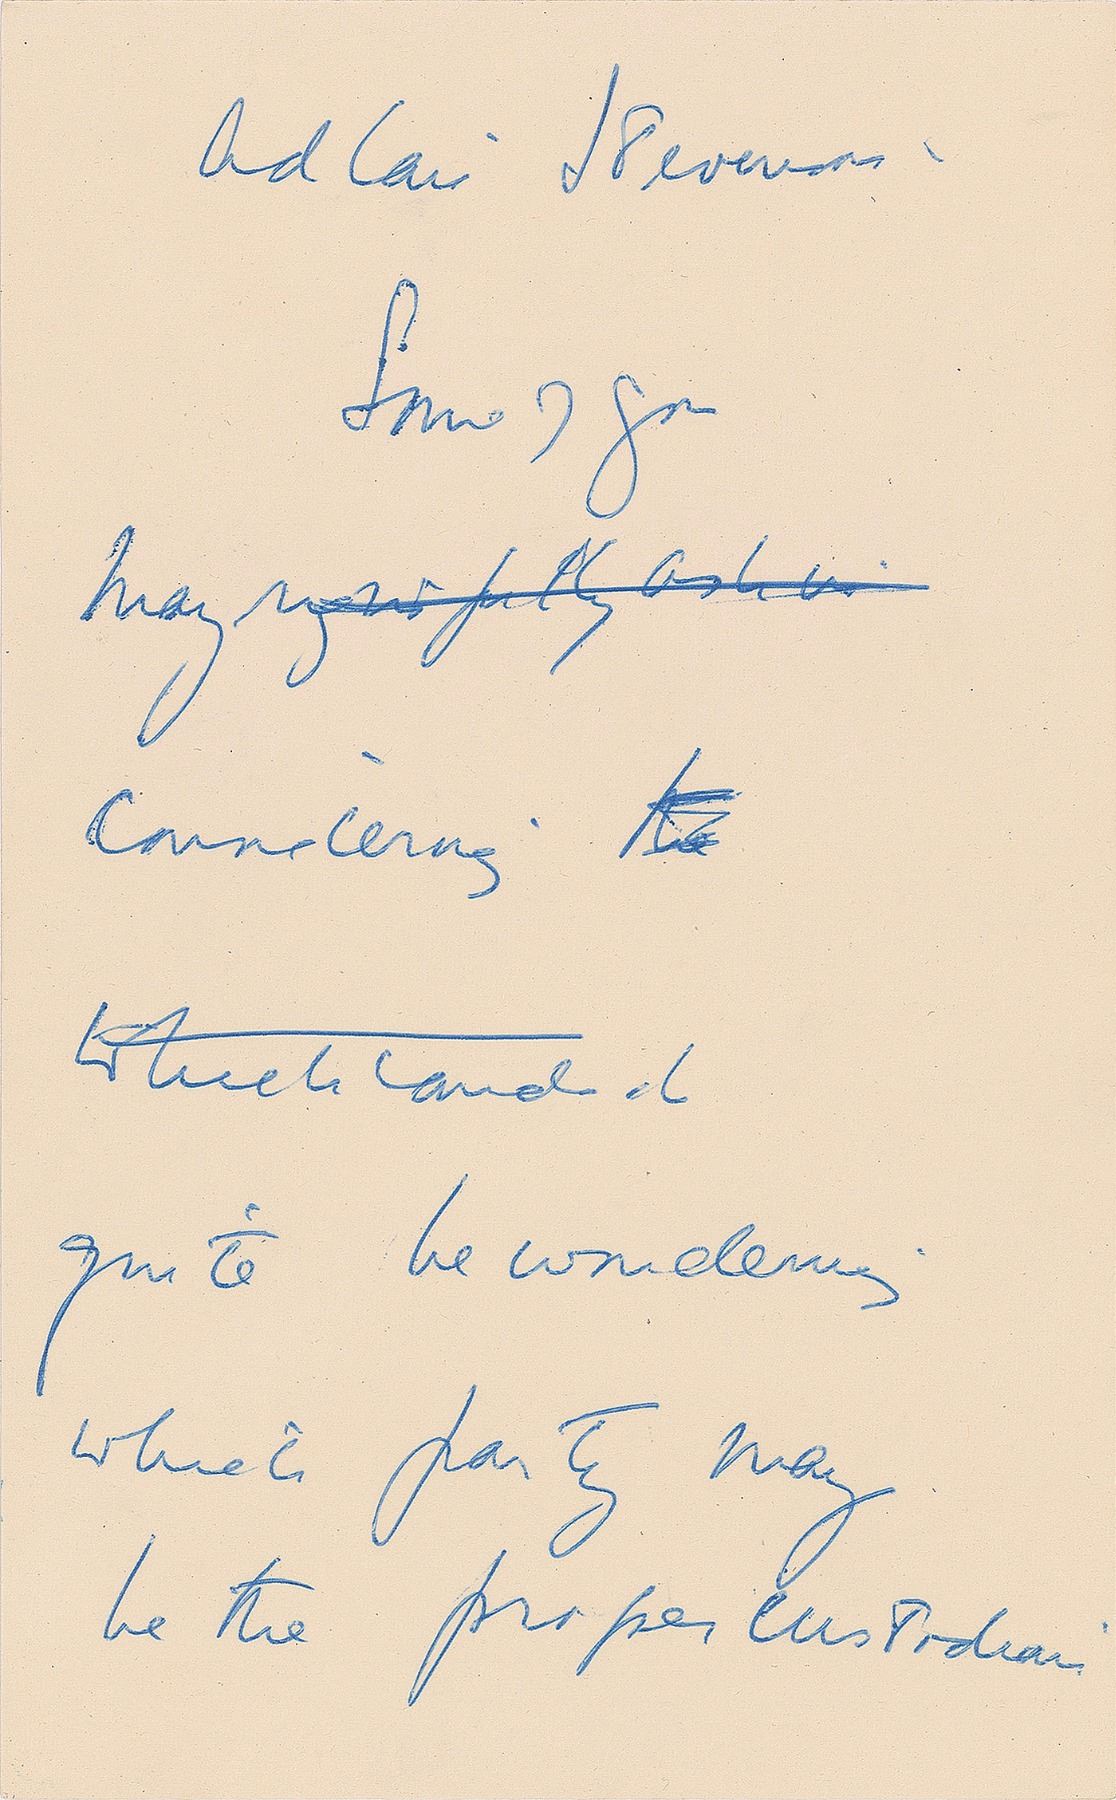 Adlai Stevenson
Some of you
may rightfully ask in
considering the
which candid
quite be wondering
which party may
be the proper custodian